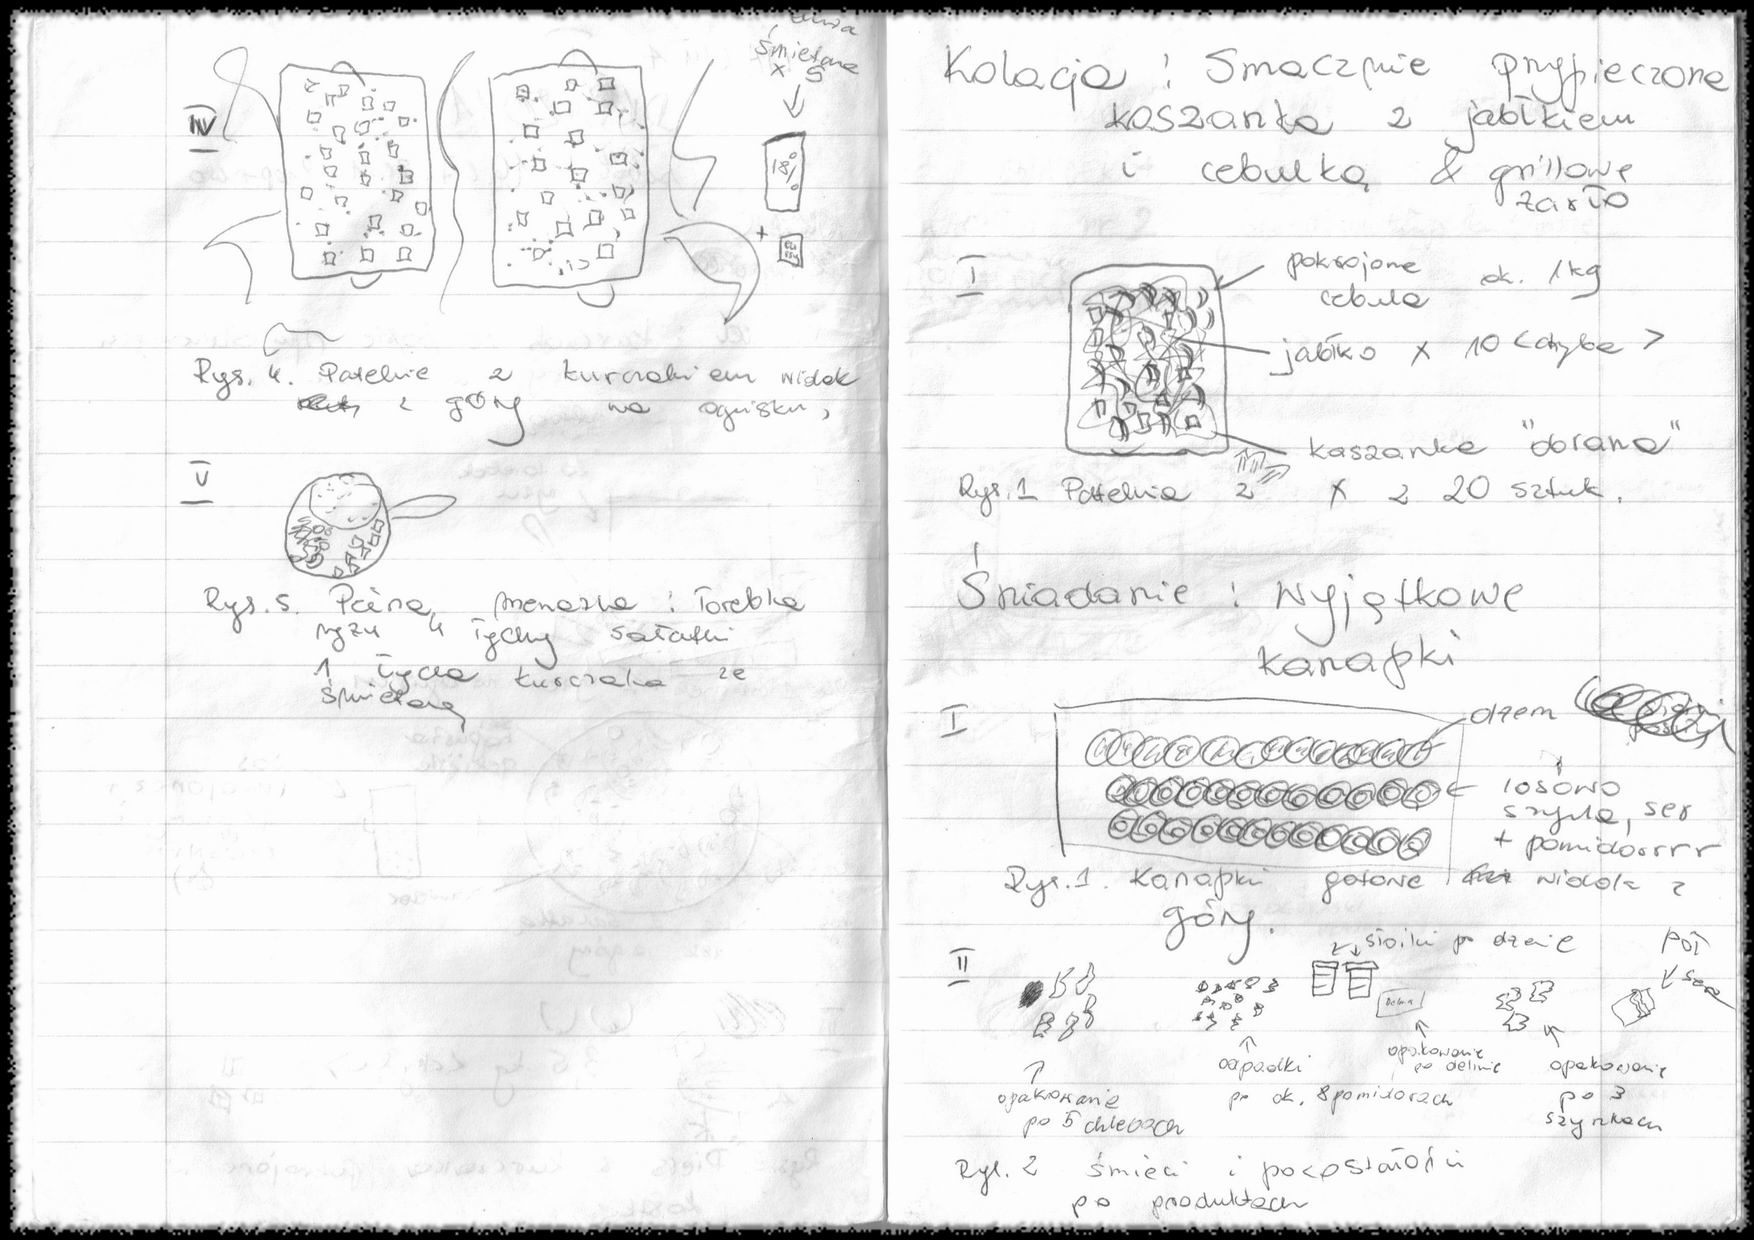 śmietana
x 5
IV
18%
+
Rys. 4. Patelnie z kurczakiem widok
z góry na ognisku,
V
Rys. 5. Pełna menażka : torebka
ryżu 4 łychy sałatki
1 łycha kurczaka ze
śmietaną
Kolacja : Smacznie przypieczona
kaszanka z jabłkiem
i cebulką & grillowe
żarło
I
pokrojona ok. 1kg
cebula
jabłko x 10 <chyba>
kaszanka "obrana"
Rys. 1 Patelnia z x 2 20 sztuk.
Śniadanie : Wyjątkowe
kanapki
I
dżem
losowo
szynka, ser
+ pomidorrrr
Rys. 1. Kanapki gotowe widok z
góry.
II
słoiki po dżemie
pół
sera
Delma
opakowanie
po 5 chlebach
odpadki
po ok. 8 pomidorach
opakowanie
po delmie
opakowanie
po 3
szynkach
Rys. 2 śmieci i pozostałości
po produktach